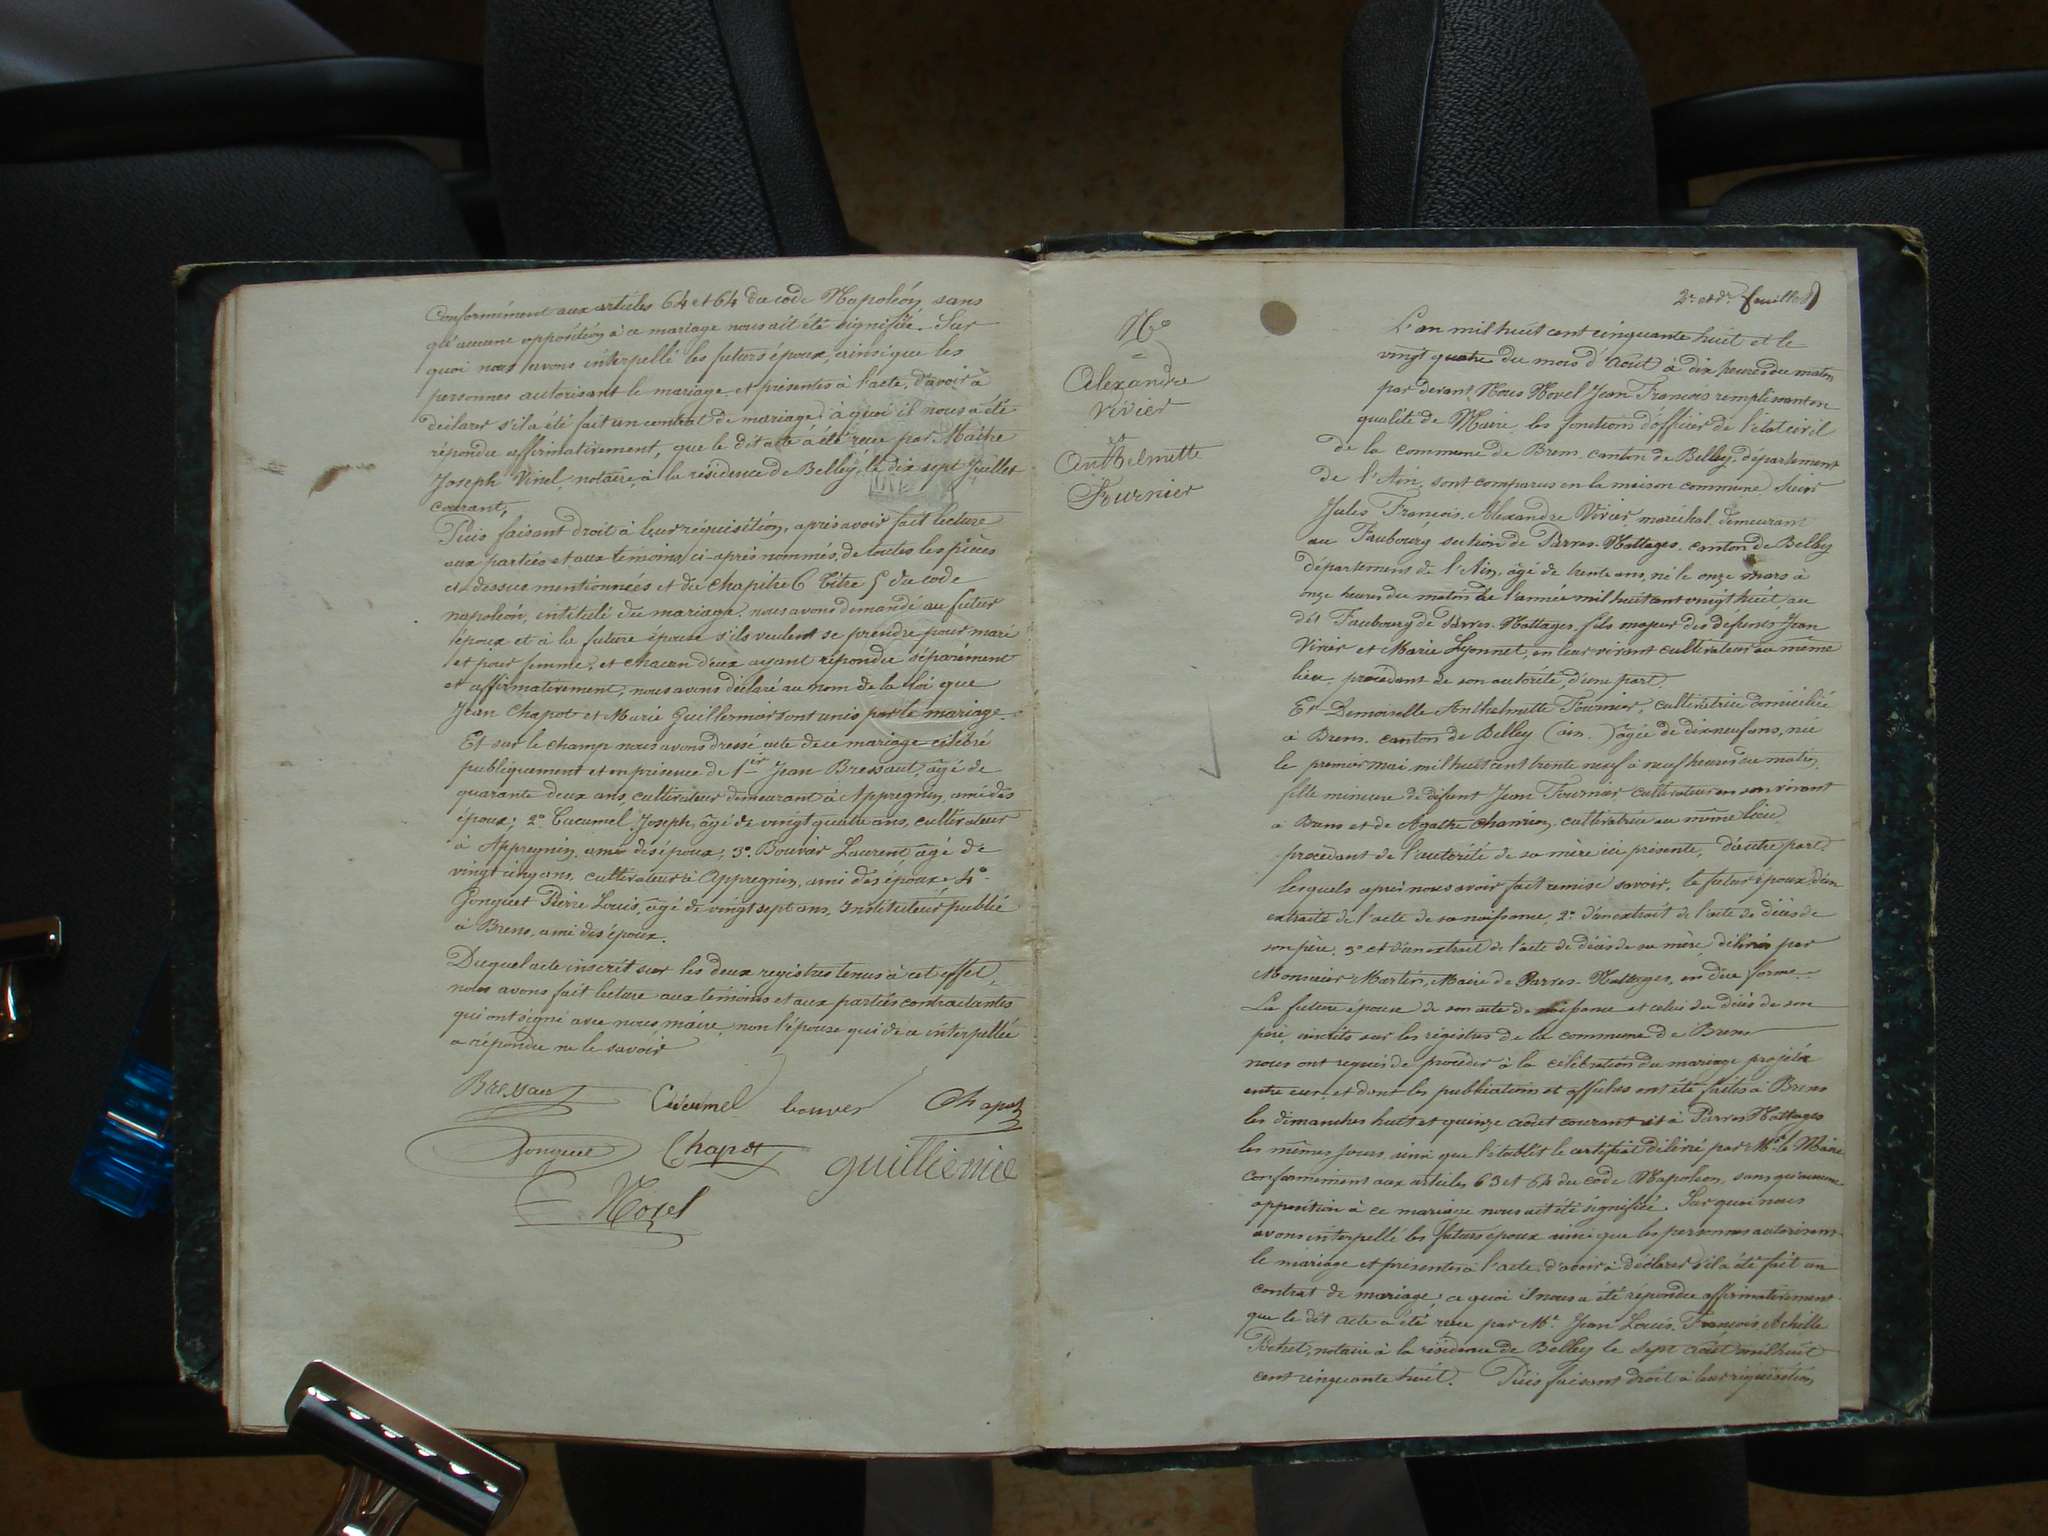 Conformément aux articles 64 et 64 du code Napoléon, sans
qu'aucune opposition à ce mariage nous ait été signifiée. Sur
quoi nous avons interpellé les futurs époux, ainsi que les
personnes autorisant le mariage et présentes à l'acte, d'avoir à
déclarer s'il a été fait un contrat de mariage, à quoi il nous a été
répondu affirmativement, que le dit acte a été reçu par Maître
Joseph Vinel, notaire, à la résidence de Belley, le dix sept Juillet
courant,
Puis faisant droit à leur réquisition, après avoir fait lecture
aux parties et aux témoins ci-après nommés, de toutes les pièces
ci dessus mentionnées et du chapitre 6 titre 5 du code
napoléon, intitulé du mariage, nous avons demandé au futur
époux et à la future épouse s'ils veulent se prendre pour mari
et pour femme, et chacun d'eux ayant répondu séparément
et affirmativement, nous avons déclaré au nom de la loi que
Jean Chapot et Marie Guillermoir sont unis par le mariage.
Et sur le champ nous avons dressé acte de ce mariage célébré
publiquement et en présence de 1er Jean Bressaut, âgé de
quarante deux ans, cultivateur demeurant à Appregnin, ami des
époux; 2° Cucumel Joseph, âgé de vingt quatre ans, cultivateur
à Appregnin, ami des époux; 3° Bouvier Laurent, âgé de
vingt cinq ans, cultivateur à Appregnin, ami des époux 4°
Gonguet Pierre Louis, âgé de vingt sept ans, Instituteur public
à Brens, ami des époux.
Duquel acte inscrit sur les deux registres tenus à cet effet,
nous avons fait lecture aux témoins et aux parties contractantes
qui ont signé avec nous maire, non l'épouse qui de ce interpellée
a répondu ne le savoir
Bressau Cucumel bouver Chapot
Gonguet Chapot guillemie
Novel
2e et dr feuillet
N°
Alexandre
Vivier
et
Anthelmette
Fournier
L'an mil huit cent cinquante huit et le
vingt quatre du mois d'Août à dix heures du matin
par devant Nous Novel Jean François remplissant en
qualité de Maire les fonctions d'officier de l'état civil
de la commune de Brens, canton de Belley, département
de l'Ain, sont comparus en la maison commune Sieur
Jules François Alexandre Vivier, maréchal, demeurant
au Faubourg section de Parves-Nattages, canton de Belley
département de l'Ain, âgé de trente ans, né le onze mars à
onze heures du matin de l'année mil huit cent vingt huit, au
dit Faubourg de Parves-Nattages, fils majeur des défunts Jean
Vivier et Marie Lyonnet, en leur vivant cultivateur au même
lieu, procédant de son autorité, d'une part.
Et Demoiselle Anthelmette Fournier, cultivatrice domiciliée
à Brens, canton de Belley (ain) âgée de dix neuf ans, née
le premier mai mil huit cent trente neuf à neuf heures du matin,
fille mineure de défunt Jean Fournier, cultivateur en son vivant
à Brens et de Agathe Charrion, cultivatrice au même lieu
procédant de l'autorité de sa mère ici présente, d'autre part.
lesquels après nous avoir fait remise savoir, le futur époux d'un
extrait de l'acte de sa naissance, 2° d'un extrait de l'acte de décès de
son père, 3° et d'un extrait de l'acte de décès de sa mère, délivrés par
Monsieur Martin, Maire de Parves-Nattages, en due forme.
La future épouse de son acte de naissance et celui du décès de son
père, inscrits sur les registres de la commune de Brens
nous ont requis de procéder à la célébration du mariage projeté
entre eux, et dont les publications et affiches ont été faites à Brens
les dimanches huit et quinze août courant et à Parves Nattages
les mêmes jours ainsi que l'établit le certificat délivré par Mr le Maire
conformément aux articles 63 et 64 du code Napoléon, sans qu'aucune
opposition à ce mariage nous ait été signifiée. Sur quoi nous
avons interpellé les futurs époux ainsi que les personnes autorisant
le mariage et présentes à l'acte, d'avoir à déclarer s'il a été fait un
contrat de mariage, a quoi il nous a été répondu affirmativement
que le dit acte a été reçu par Me Jean Louis François Achille
notaire à la résidence de Belley le sept août mil huit
cent cinquante huit. Puis faisant droit à leur réquisition